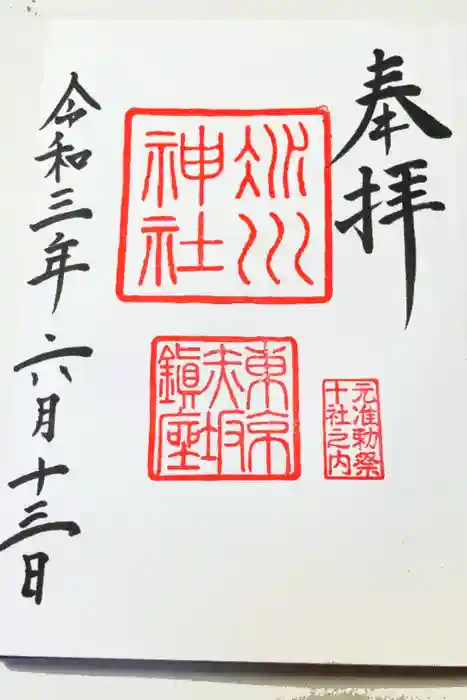 奉拝
氷川
神社
東京
赤坂
鎮座
元准勅祭
十社之内
令和三年六月十三日